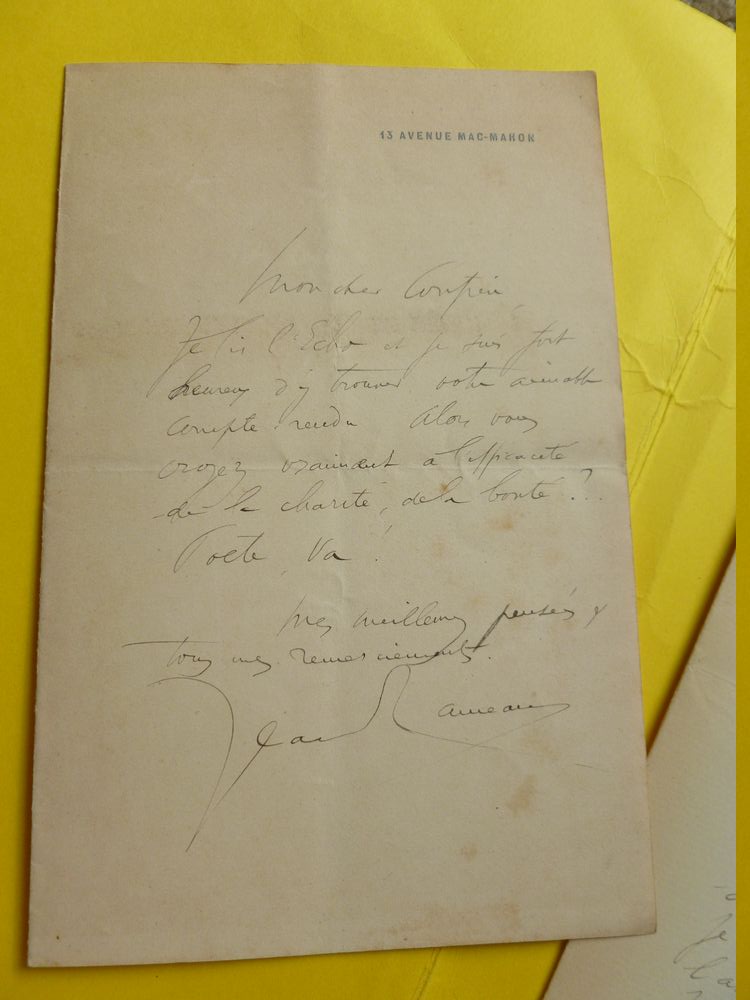 13 AVENUE MAC-MAHON
Mon cher
Je lis l'Echo et je suis fort
heureux d'y trouver votre aimable
compte-rendu Alors vous
croyez vraiment à l'efficacité
de la charité, de la bonté ?..
Poète, va !
Mes meilleures pensées &
tous mes remerciements.
Jean Rameau